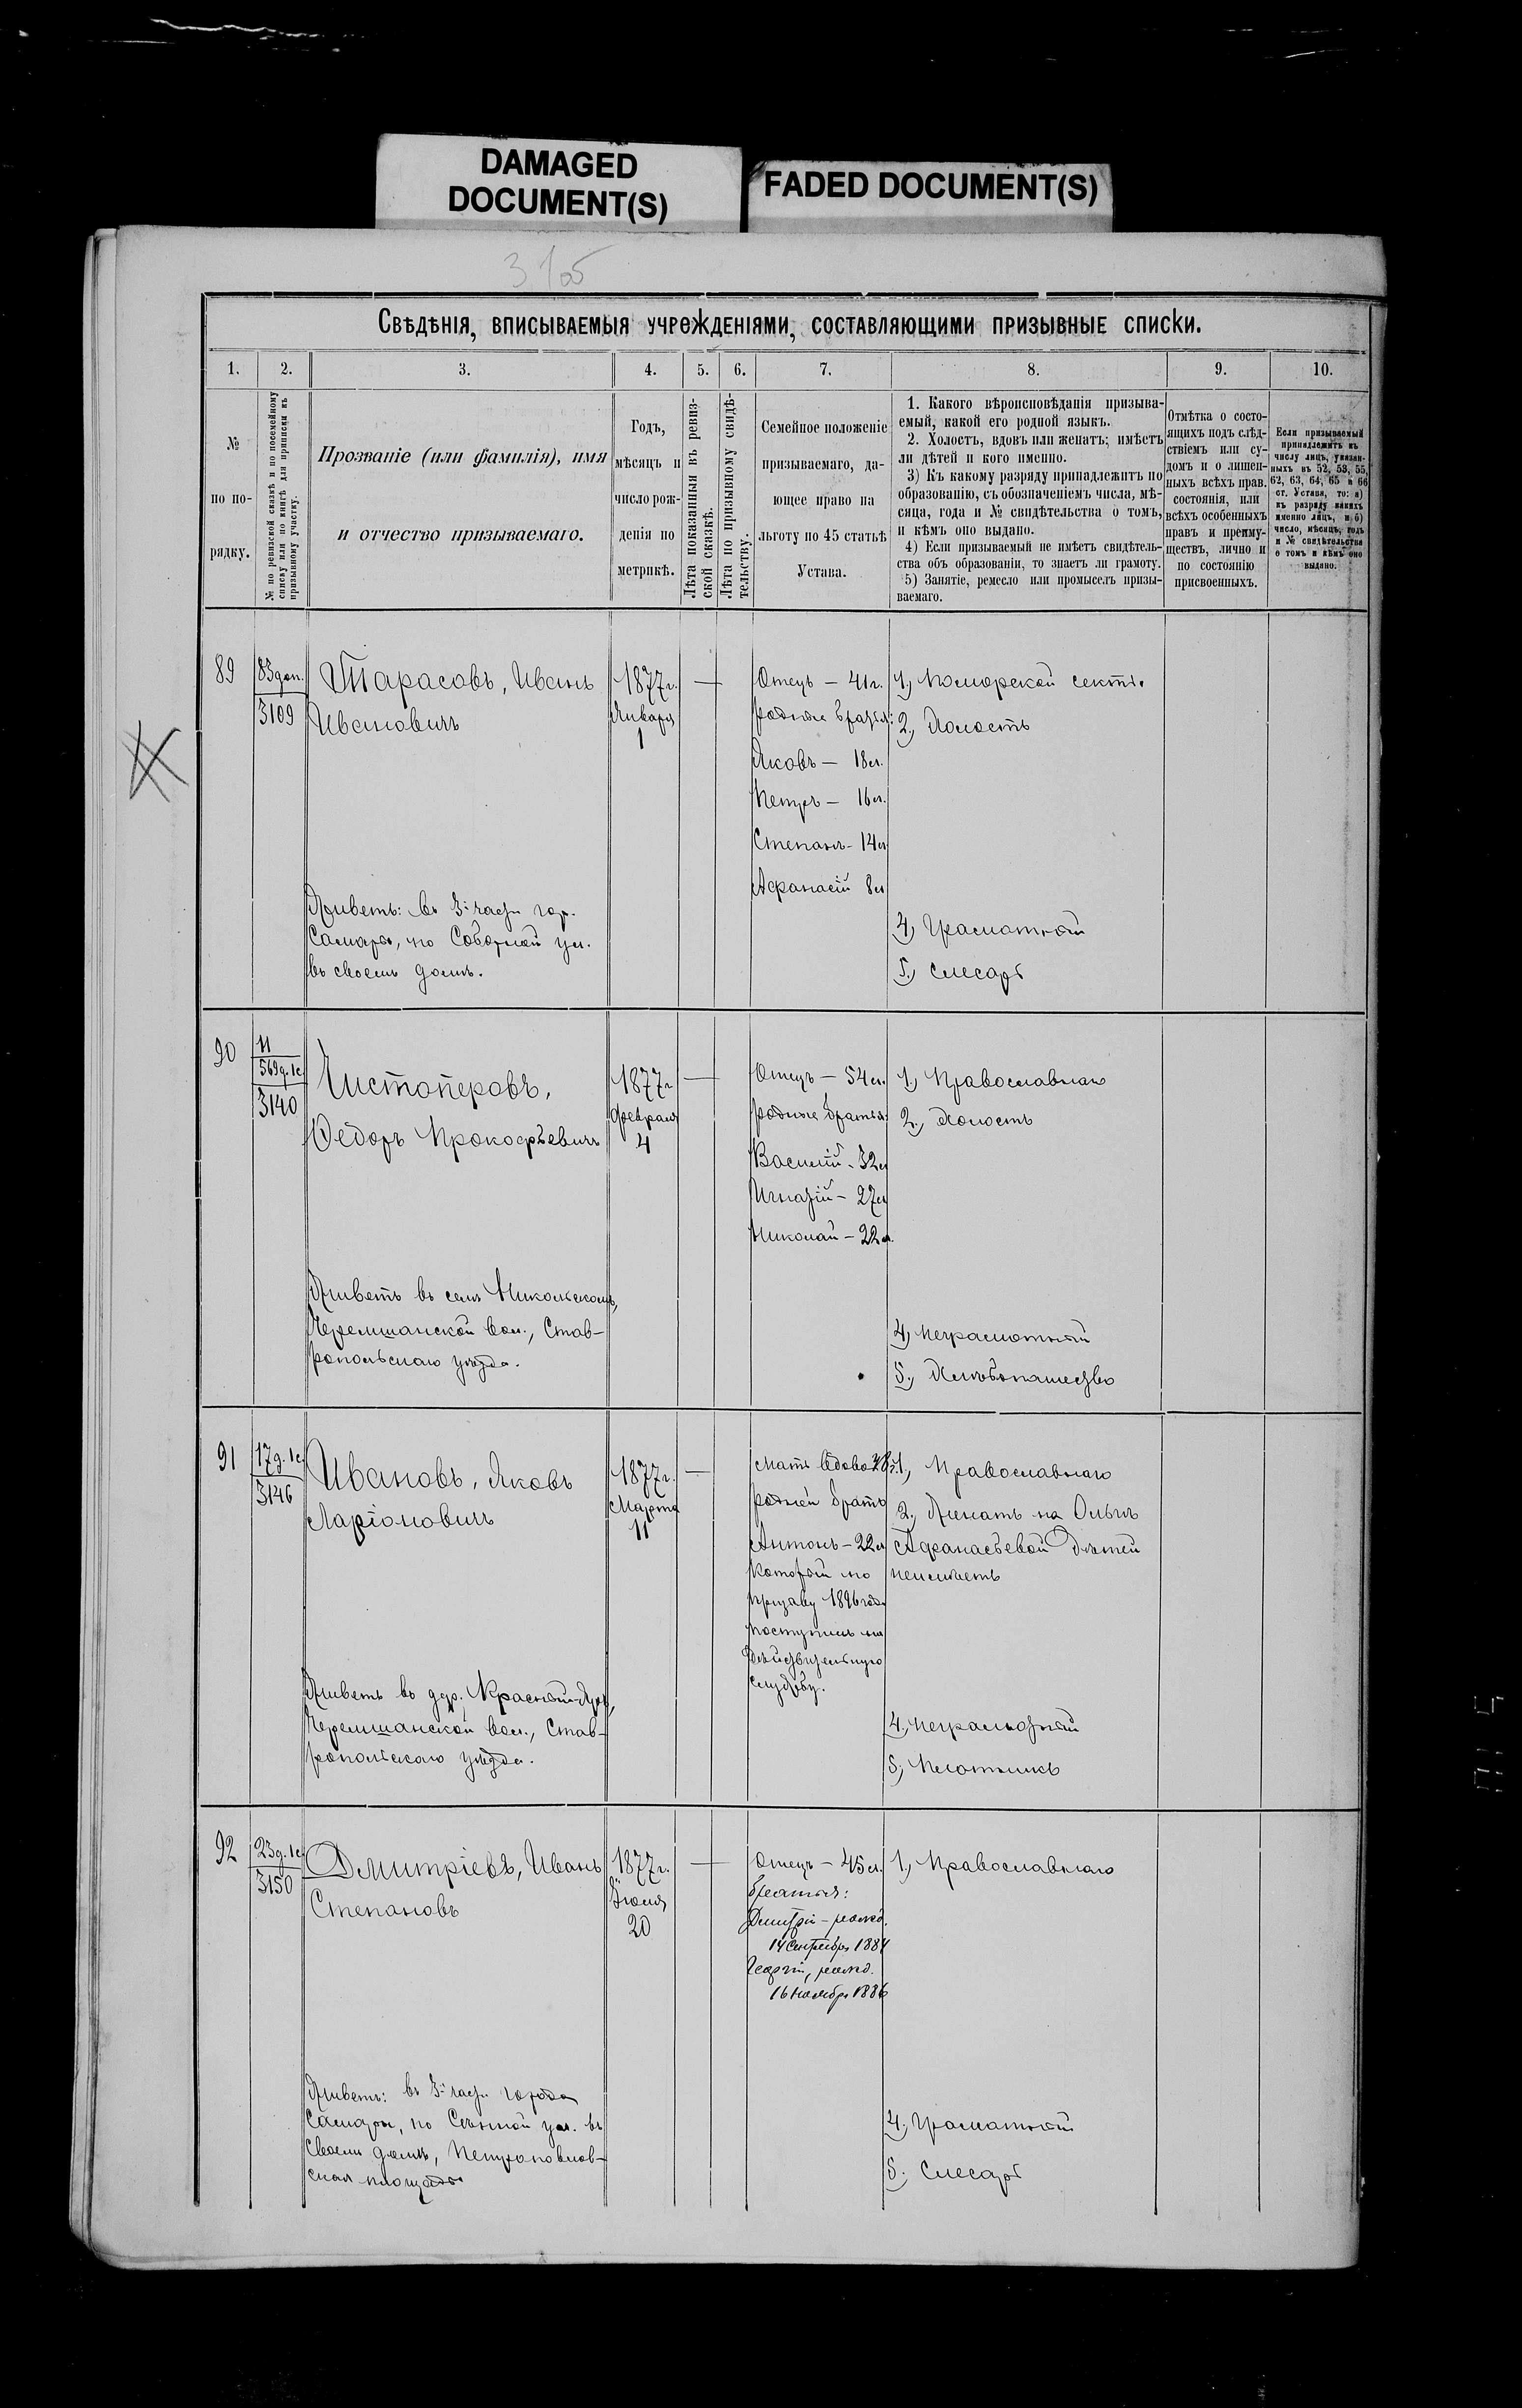 DAMAGED
DOCUMENT(S)
FADED DOCUMENT(S)
3105
Свѣдѣнія, вписываемыя учрежденіями, составляющими призывные списки.
1.
2.
3.
4.
5.
6.
7.
8.
9.
10.
№
по по-
рядку.
№ по ревизской сказкѣ и по посемейному
списку или по книгѣ для приписки къ
призывному участку.
Прозваніе (или фамилія), имя
и отчество призываемаго.
Годъ,
мѣсяцъ и
число рож-
денія по
метрикѣ.
Лѣта показанныя въ ревиз-
ской сказкѣ.
Лѣта по призывному свидѣ-
тельству.
Семейное положеніе
призываемаго, да-
ющее право на
льготу по 45 статьѣ
Устава.
1. Какого вѣроисповѣданія призыва-
емый, какой его родной языкъ.
2. Холостъ, вдовъ или женатъ; имѣетъ
ли дѣтей и кого именно.
3) Къ какому разряду принадлежитъ по
образованію, съ обозначеніемъ числа, мѣ-
сяца, года и № свидѣтельства о томъ,
и кѣмъ оно выдано.
4) Если призываемый не имѣетъ свидѣтель-
ства объ образованіи, то знаетъ ли грамоту.
5) Занятіе, ремесло или промыселъ призы-
ваемаго.
Отмѣтка о состо-
ящихъ подъ слѣд-
ствіемъ или су-
домъ и о лишен-
ныхъ всѣхъ прав.
состоянія, или
всѣхъ особенныхъ
правъ и преиму-
ществъ, лично и
по состоянію
присвоенныхъ.
Если призываемый
принадлежитъ къ
числу лицъ, указан-
ныхъ въ 52, 53, 55,
62, 63, 64, 65 и 66
ст. Устава, то: а)
къ разряду какихъ
именно лицъ, и б)
число, мѣсяцъ, годъ
и № свидѣтельства
о томъ и кѣмъ оно
выдано.
89
83 доп.
3109
Тарасовъ, Иванъ
Ивановичъ
1877 г.
Января
1
Отецъ — 41 г.
родные братья:
Яковъ — 18 л.
Петръ — 16 л.
Степанъ — 14 л
Афанасій 8 л
1, Поморской секты.
2, Холостъ
4, Грамотный
5, Слесарь
Живетъ: въ 3й части гор.
Самары, по Соборной ул.
въ своемъ домѣ.
90
11
569 д. 1с
3140
Чистоперовъ,
Федоръ Прокофьевичъ
1877 г
Февраля
4
Отецъ — 54 л.
родные братья:
Василій - 32 л
Игнатій — 27 л
Николай — 22 л.
1, Православнаго
2, Холостъ
4, неграмотный
5, Хлѣбопашество
Живетъ въ селѣ Никольскомъ,
Черемшанской вол., Став-
ропольскаго уѣзда.
91
17 д. 1с
3146
Ивановъ, Яковъ
Ларіоновичъ
1877 г.
Марта
11
Мать вдова
родной братъ
Антонъ — 22 л
который по
призыву 1896 года
поступилъ на
дѣйствительную
службу.
1, Православнаго
2, Женатъ на Ольгѣ
Афанасьевой дѣтей
неимѣетъ
4, неграмотный
5, Плотникъ
Живетъ въ дер. Красный Яръ,
Черемшанской вол., Став-
ропольскаго уѣзда.
92
23 д. 1с
3150
Дмитріевъ, Иванъ
Степановъ
1877 г.
20
Отецъ — 45 л.
братья:
Димитрій — рожд.
14 Сентября 1884
Георгій, рожд.
16 ноября 1886
1, Православнаго
4, Грамотный
5, Слесарь
Живетъ: въ 3й части города
Самары, по Сѣнной ул. въ
своемъ домѣ, Петропавлов-
ская площадь